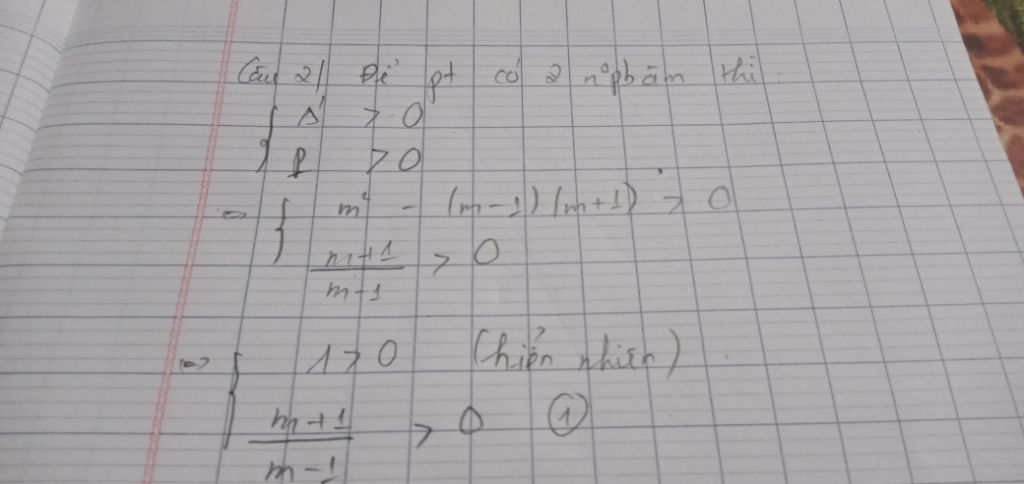 Câu 2) Để pt có 2 nº phân thì
{ Δ' > 0
P > 0
⇔ { m² - (m-1)(m+1) > 0
m+1 / m-1 > 0
⇔ { 1 > 0 (hiển nhiên)
m+1 / m-1 > 0 ①